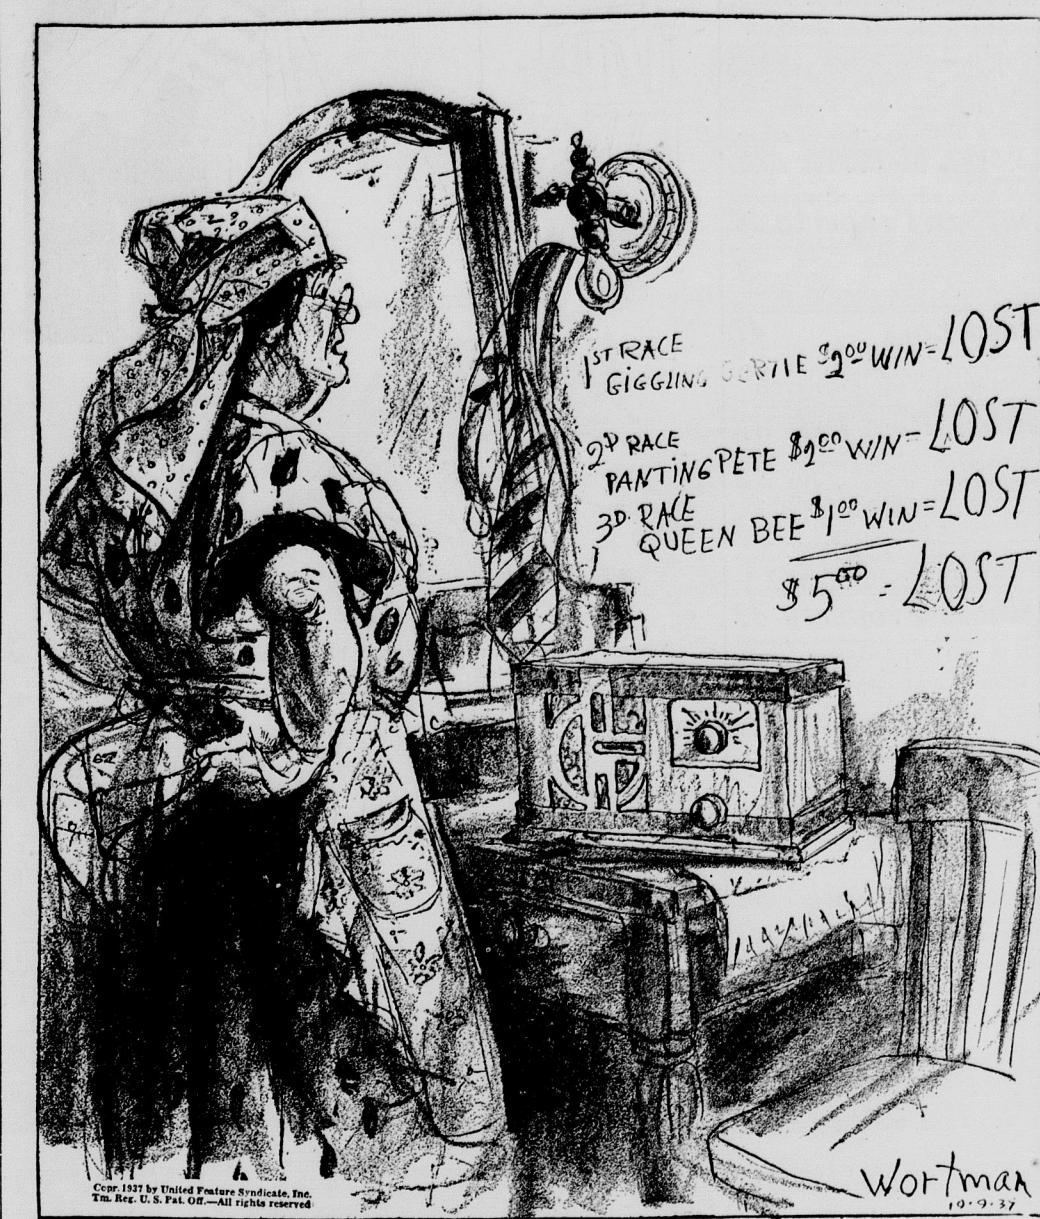 1ST RACE
GIGGLING GERTIE $2.00 WIN = LOST
2D RACE
PANTING PETE $2.00 WIN = LOST
3D. RACE
QUEEN BEE $1.00 WIN = LOST
$5.00 = LOST
Wortman
10-9-37
Copr. 1937 by United Feature Syndicate, Inc.
Tm. Reg. U. S. Pat. Off.—All rights reserved